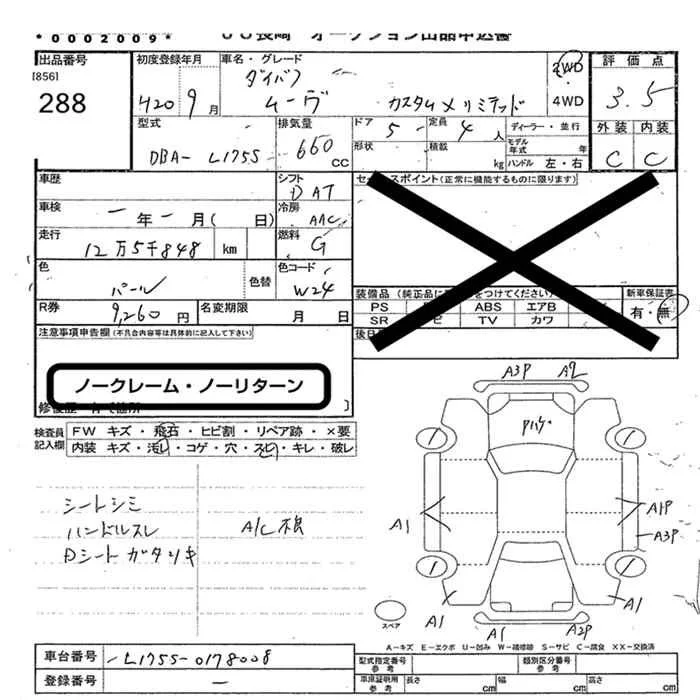 *0002009* JU長崎 オークション出品申込書
出品番号 初度登録年月 車名・グレード 2WD 評価点
[856] ダイハツ
288 H20 9月 ムーヴ カスタムメリミテッド 4WD 3.5
型式 排気量 ドア 5 定員 4人 ディーラー・並行 外装 内装
DBA-L175S- 660 CC 形状 積載 kg モデル年式 年 ハンドル 左・右 C C
車歴 シフト DAT セールスポイント(正常に機能するものに限ります)
車検 一年一月( 日) 冷房 AAC
走行 12万5千848 km 燃料 G
色 パール 色替 色コード W24
装備品 (純正品に をつけてください) 新車保証書
R券 9,260円 名変期限 月 日 PS ABS エアB 有・無
SR TV カワ
注意事項申告欄 (不具合内容等は具体的に記入して下さい) 後日
ノークレーム・ノーリターン
修復歴
検査員記入欄 FW キズ・飛石・ヒビ割・リペア跡・×要
内装 キズ・汚レ・コゲ・穴・スレ・キレ・破レ
A3P A2
シートシミ
ハンドルスレ A/C根
Dシートガタツキ
A1 A1P
A3P
A1 A1
スペア A1 A2P
A-キズ E-エクボ U-凹み W-補修跡 S-サビ C-腐食 XX-交換済
車台番号 -L175S-0178008 型式指定番号 参考 類別区分番号 参考
登録番号 一 車庫証明用 参考 長さ cm 幅 cm 高さ cm